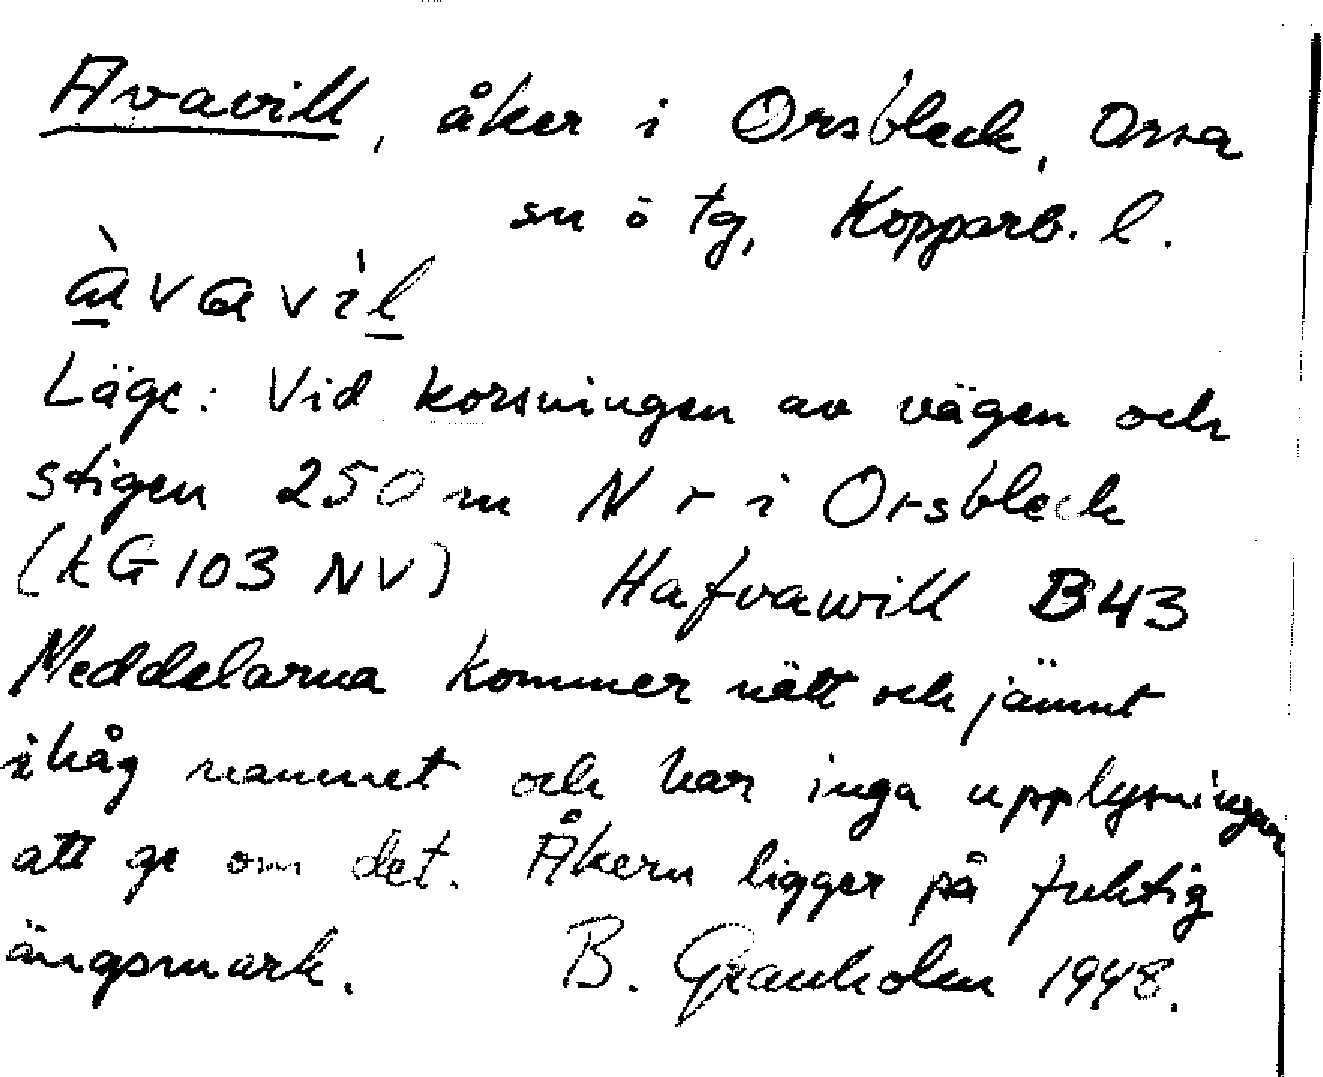 Avavill, åker i Orsbleck, Orsa
sn ö tg, Kopparb. l.
àvavìl
Läge: Vid korsningen av vägen och
stigen 250 m N r i Orsbleck
(kG 103 NV) Hafvawill B43
Meddelarna kommer nätt och jämnt
ihåg namnet och har inga upplysningar
att ge om det. Åkern ligger på fuktig
ängsmark. B. Granholm 1948.